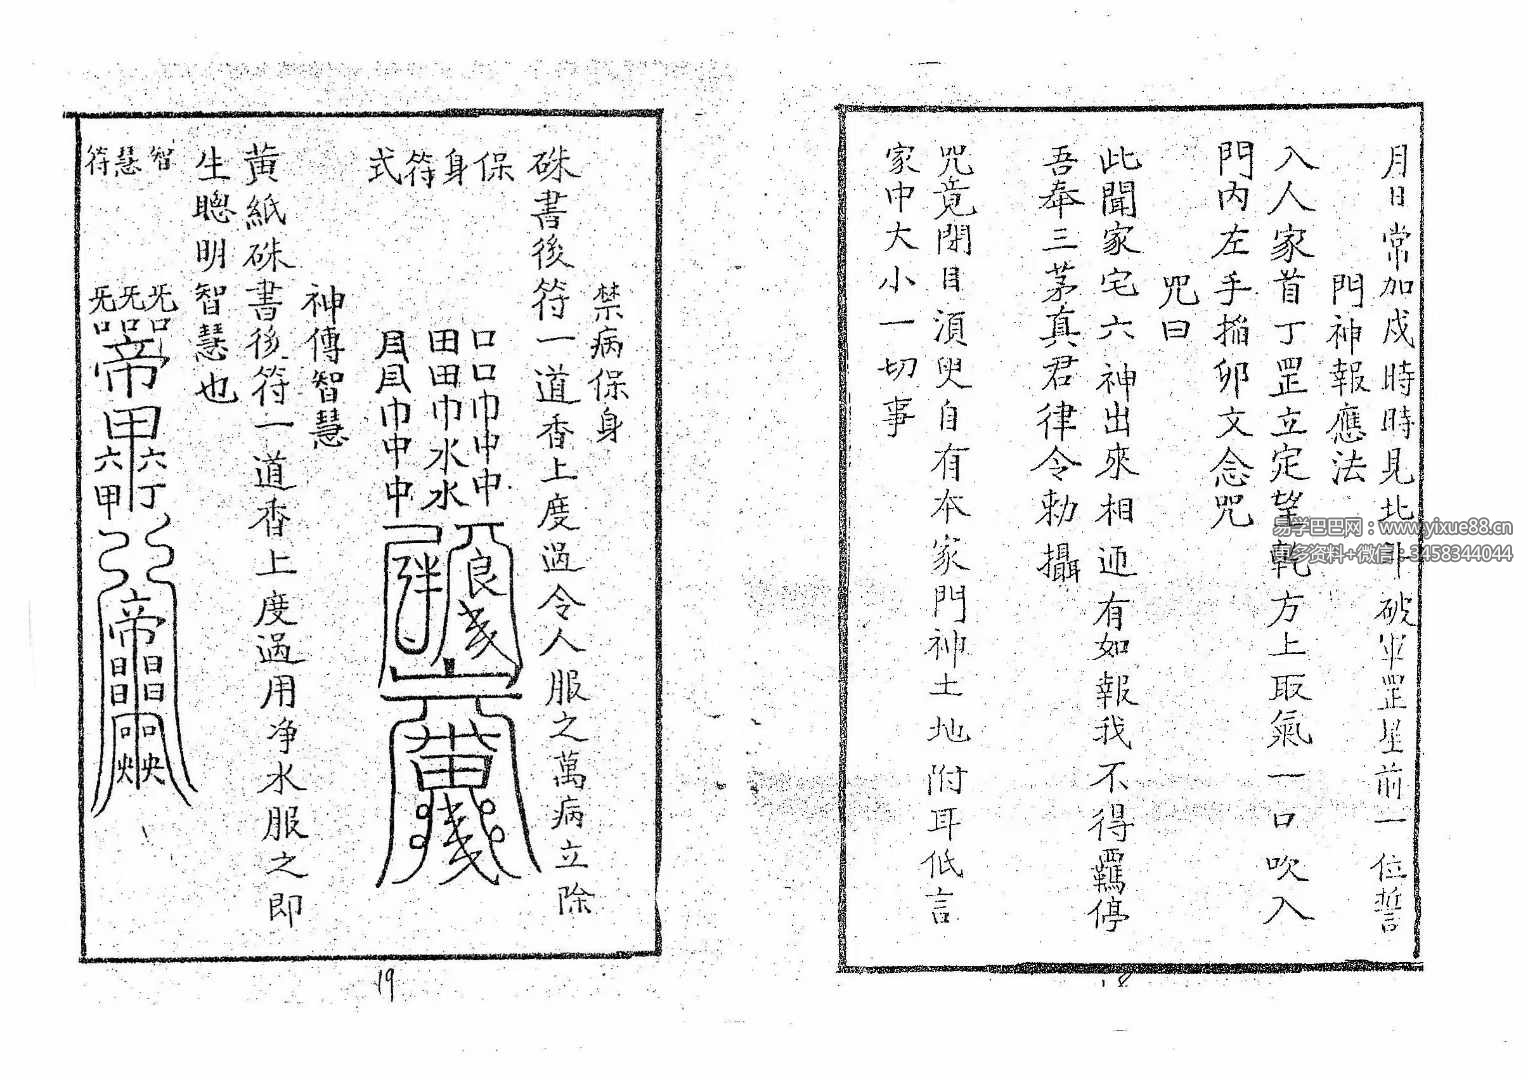 月日常加戍時時見北斗破軍罡星前一位誓
門神報應法
入人家首丁罡立定望乾方上取氣一口吹入
門內左手搯卯文念咒
咒曰
此聞家宅六神出來相迊有如報我不得羈停
吾奉三茅真君律令勅攝
咒竟閉目湏臾自有本家門神土地附耳低言
家中大小一切事
18
禁病保身
硃書後符一道香上度過令人服之萬病立除
保身符式
口口巾中中
田田巾水水
月月巾中中
神傳智慧
黃紙硃書後符一道香上度過用净水服之即
生聰明智慧也
智慧符
19
易学巴巴网：www.yixue88.cn
更多资料+微信：3458344044